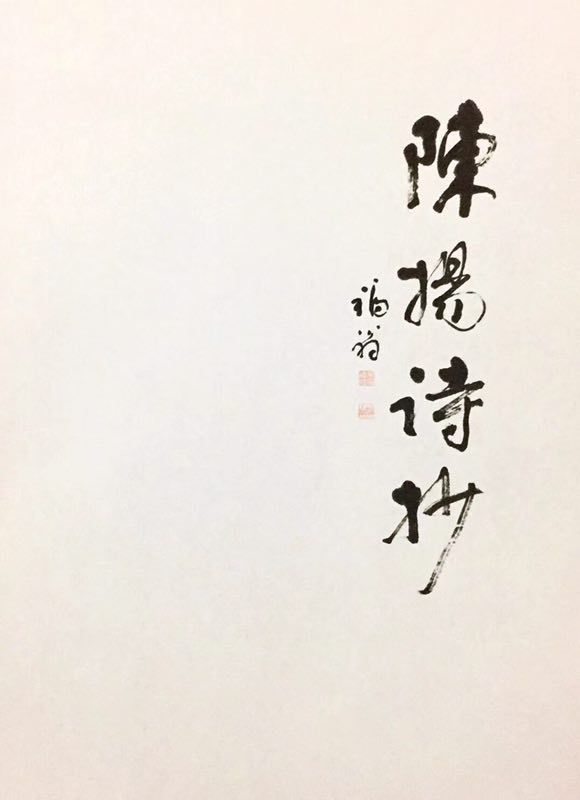 陳揚诗抄
福翁